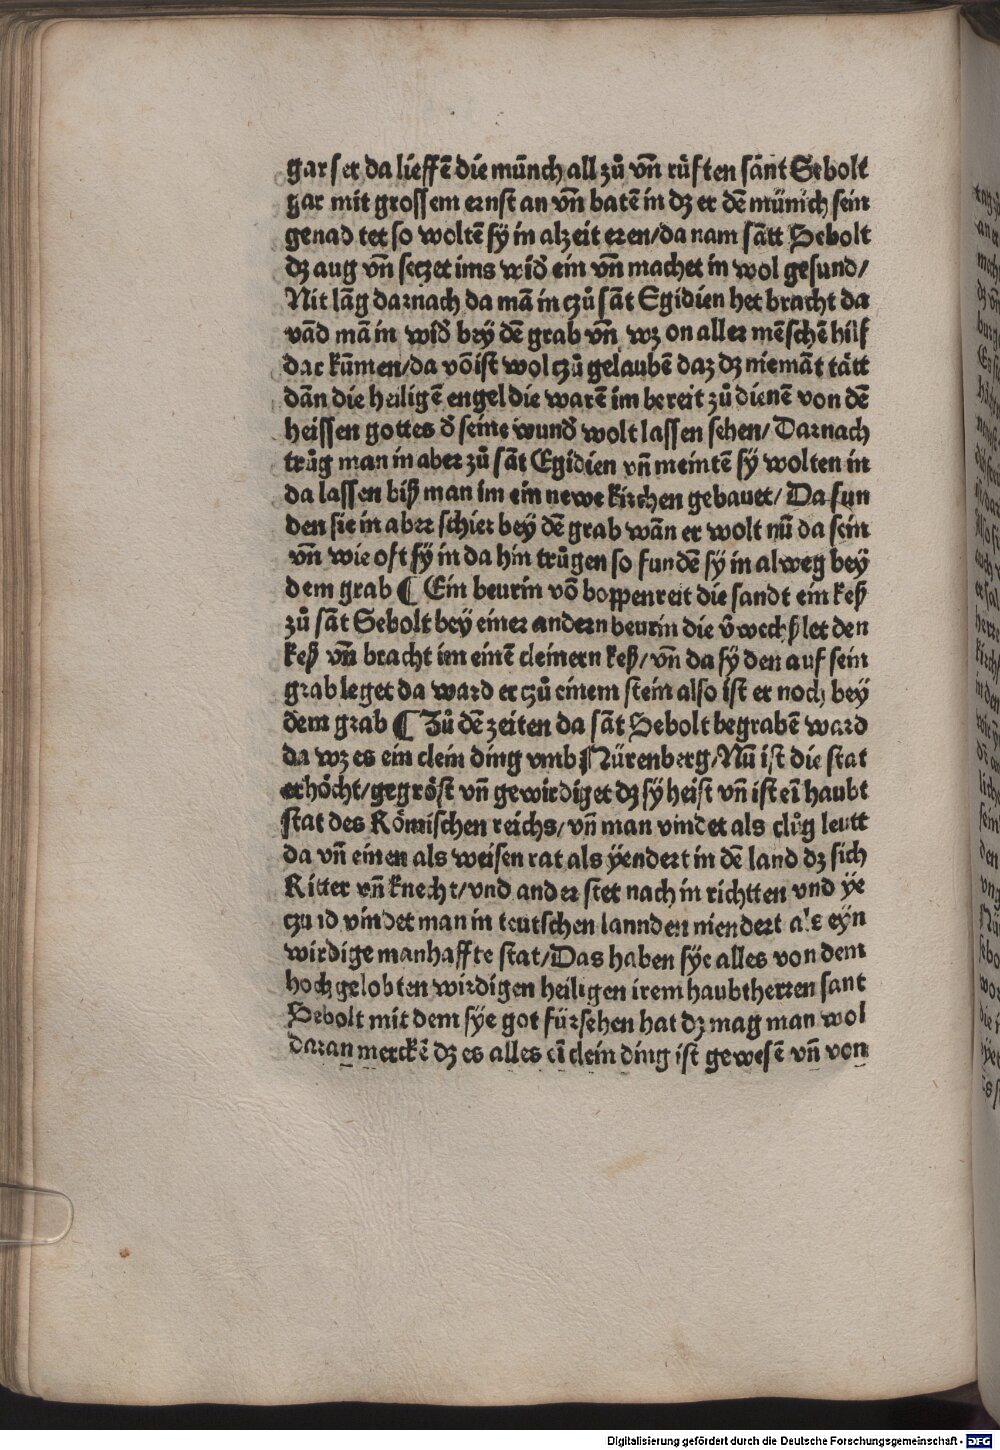 gar ser da lieffē die mūnch all zů vn̄ růften sānt Sebolt
gar mit grossem ernst an vn̄ batē in dz er dē münich sein
genad tet so woltē sy̋ in alzeit eren/da nam sātt Sebolt
dz aug vn̄ seczet ims wid̕ ein vn̄ machet in wol gesund/
Nit lāg darnach da mā in czů sāt Egidien het bracht da
vād mā in wid̕ bey̋ dē grab vn̄ wz on aller mēschē hilf
dar kūmen/da vō ist wol czů gelaubē daz dz niemāt tätt
dān die heiligē engel die warē im bereit zů dienē von dē
heissen gottes d̕ seine wund̕ wolt lassen sehen/Darnach
trůg man in aber zů sāt Egidien vn̄ meintē sy̋ wolten in
da lassen biß man im ein newe kirchen gebauet/Da fun
den sie in aber schier bey̋ dē grab wān er wolt nū da sein
vn̄ wie oft sy̋ in da hin trůgen so fundē sy̋ in alweg bey̋
dem grab ¶ Ein beurin vō boppenreit die sandt ein keß
zů sāt Sebolt bey̋ einer andern beurin die v̄wechßlet den
keß vn̄ bracht im einē cleinern keß/vn̄ da sy̋ den auf sein
grab leget da ward er czů einem stein also ist er noch bey̋
dem grab ¶ Zů dē zeiten da sāt Sebolt begrabē ward
da wz es ein clein ding vmb Nürenberg/Nū ist die stat
erhöcht/gegröst vn̄ gewirdiget dz sy̋ heist vn̄ ist eī haubt
stat des Römischen reichs/vn̄ man vindet als clůg leutt
da vn̄ einen als weisen rat als y̋endert in dē land dz sich
Ritter vn̄ knecht/vnd ander stet nach in richtten vnd y̋e
czu id vindet man in teutschen lannden niendert als eyn
wirdige manhaffte stat/Das haben sy̋e alles von dem
hochgelobten wirdigen heiligen irem haubtherren sant
Sebolt mit dem sy̋e got fürsehen hat dz mag man wol
daran merckē dz es alles eī clein ding ist gewesē vn̄ von
Digitalisierung gefördert durch die Deutsche Forschungsgemeinschaft - DFG